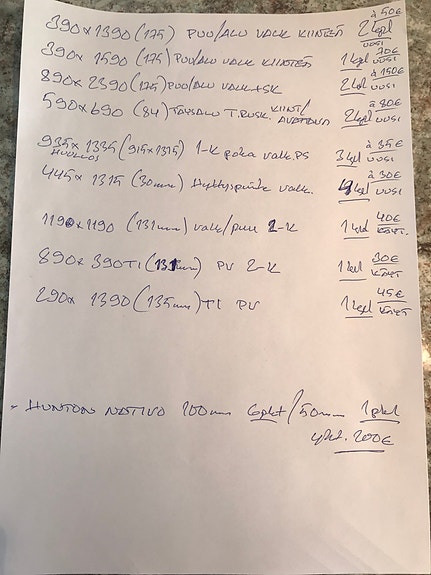 390x1390 (175) PUU/ALU VALK KIINTEÄ 2kpl à 50€ UUSI
390x 1590 (175) PUU/ALU VALK KIINTEÄ 1kpl 70€ UUSI
890x2390 (175) PUU/ALU VALK+SK 2kpl à 150€ UUSI
590x690 (84) TÄYSALU T.RUSK. KIINT/AVATTAVA 2kpl à 80€ UUSI
935x1335 (915x1315) 1-K poka valk. PS 3kpl à 35€ UUSI
HUULLOS
445x1315 (30mm) valk. 4kpl à 30€ UUSI
1190x1190 (131mm) valk/puu 2-K 1kpl 40€ KÄYT.
890x390TI (131mm) PV 2-K 1kpl 30€ KÄYT
290x 1390 (135mm) TI PV 1kpl 45€ KÄYT
- HUNTON NATIVO 100mm 6pkt/50mm 1pkt
yht. 200€